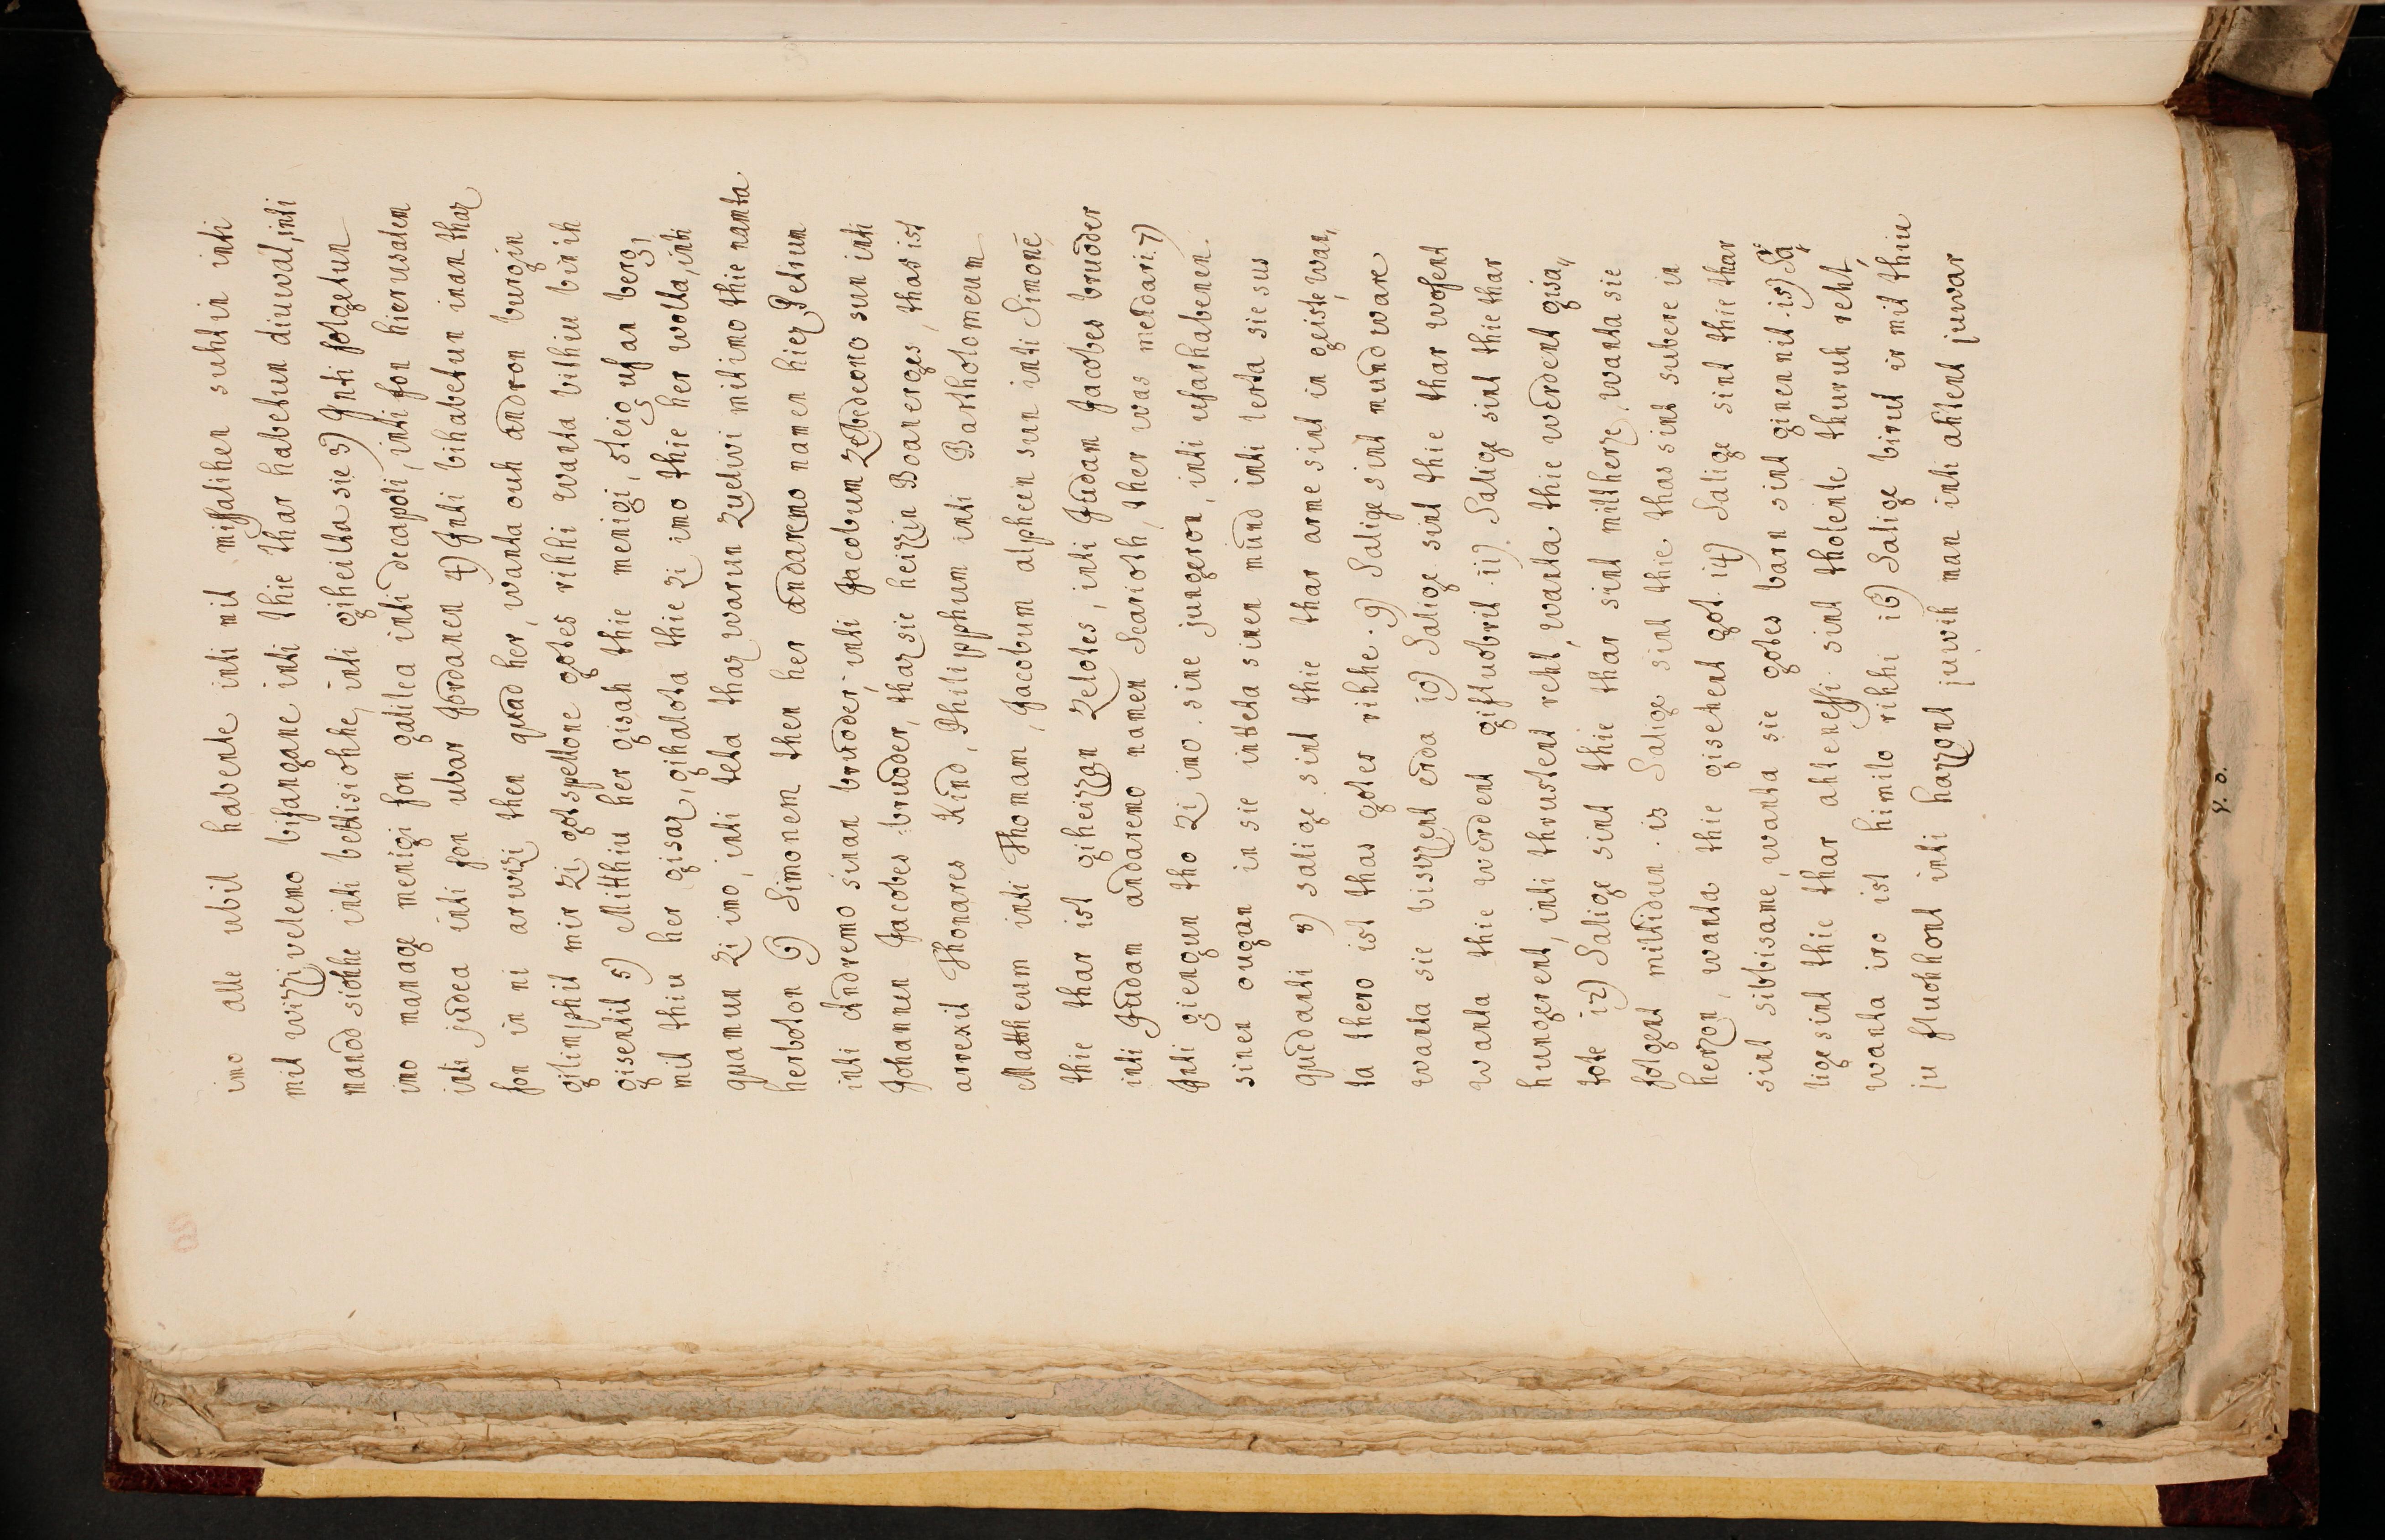 imo alle ubil habente inti mit misalihen suhtin inti
mit wizzi velemo bifangane inti thie thar habetun diuual, inti
manod siohhe inti bettisiohhe, inti giheilta sie 3) Inti folgetun
imo manage menigi fon galilea inti decapoli, inti fon hierusalem
inti judea inti fon ubar Jordanen 4) Inti bihabetun inan thaz
fon in ni arwizi then quad her, wanta ouh andron burgin
gilimphit mir zi gotspellone gotes rihhi wanta bithiu bin ih
gisentit 5) Mitthiu her gisah thie menigi, steig ufan berg,
mit thiu her gisaz, gihalota thie zi imo thie her wolta, inti
quamun zi imo, inti teta thaz warun zuelivi mit imo thie namta
herboton 6) Simonem then her andaremo namen hiez Petrum
inti Andremo sinan bruoder, inti Jacobum Zebedeono sun inti
Johannen Jacobes bruoder, thaz sie heizzin Boanerges, thas ist
arrexit Thonares Kind, Philipphum inti Bartholomeum
Mattheum inti Thomam, Jacobum alpheen sun inti Simonē
thie thar ist giheizzan Zelotes, inti Judam Jacobes bruoder
inti Judam andaremo namen Scarioth, ther was meldari. 7)
Inti giengun tho zi imo. sine jungeron, inti ufarhabenen.
sinen ougun in sie inteta sinen mund inti lerta sie sus
quedanti 8) salige sint thie thar arme sint in geiste, wan,
ta thero ist thas gotes rihhe. 9) Salige sint mundware
wanta sie bisizzent erda 10) Salige sint thie thar wofent
wanta thie werdent gifluobrit. 11) Salige sint thie thar
hungerent, inti thrustent reht, wanta thie werdent gisa,,
tote 12) Salige sint thie thar sint miltherze, wanta sie
folgent miltidun. 13 Salige sint thie. thas sint subere in
herzon, wanta thie gisehent got. 14) Salige sint thie thar
sint sibbisame, wanta sie gotes barn sint ginennit. 15) Sa,,
lige sint thie thar ahtenessi sint tholente thuruh reht,
wanta iro ist himilo rihhi 16) Salige birut ir mit thiu
ju fluohhont inti hazzont juwih man inti ahtent juwar